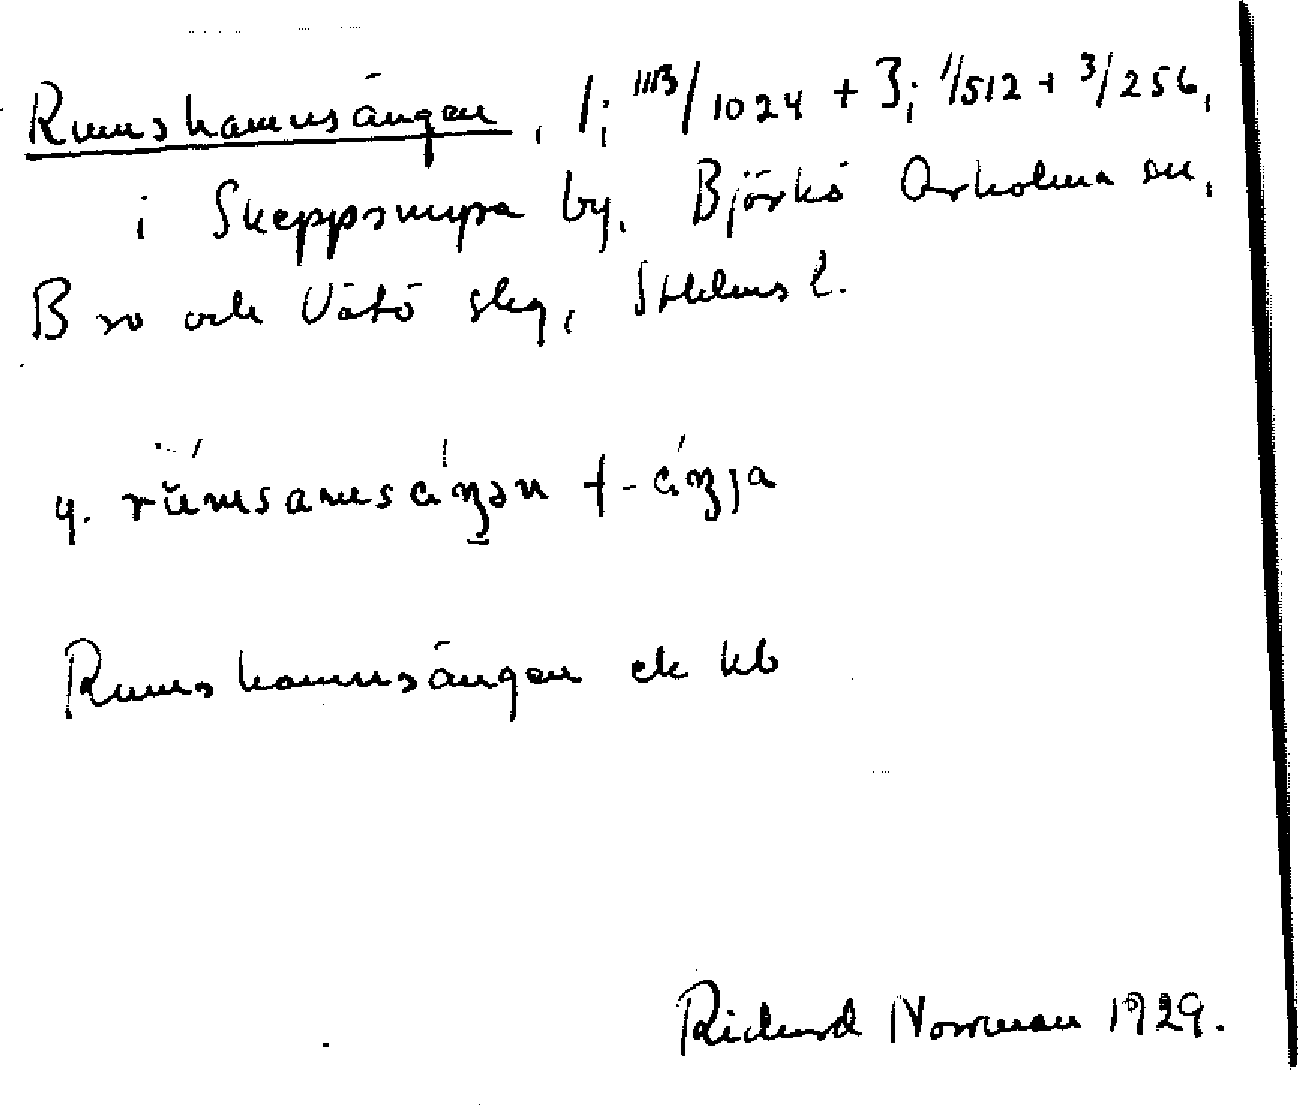 Rumshamnsängen, 1; /1024 + 3; 1/512 + 3/256,
i Skeppsmyra by, Björkö Arholma sn,
Bro och Vätö skg, Sthlms l.
rumsamsäŋən + -äŋja
Rumshamnsängen ek kb
Richard Norrman 1929.